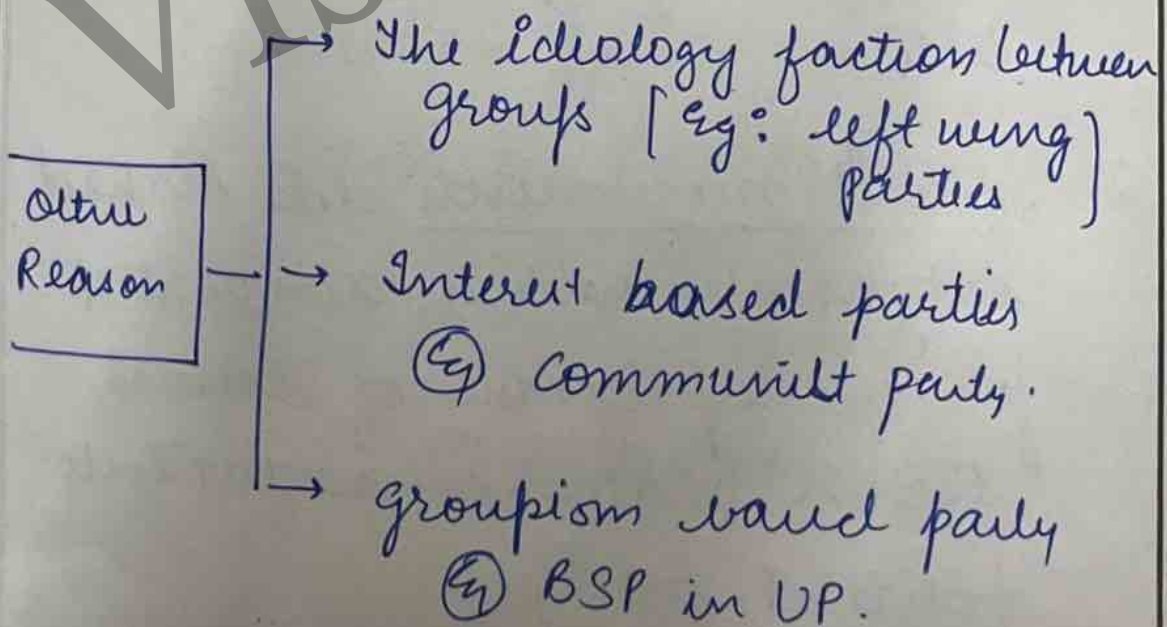 The ideology faction between
groups [Eg: left wing
parties]
Other
Reason
Interest based parties
Eg Communist party.
groupism based party
Eg BSP in UP.